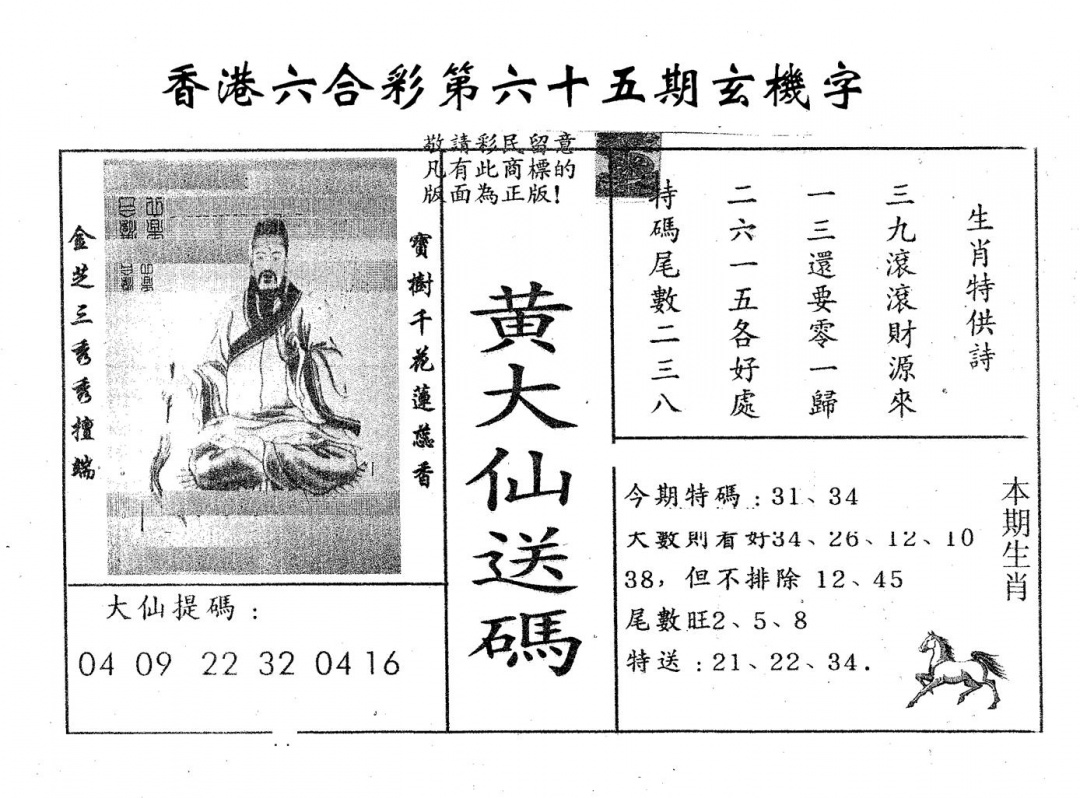 香港六合彩第六十五期玄機字
敬請彩民留意
凡有此商標的
版面為正版！
金芝三秀秀擅端
寶樹千花蓮蕊香
大仙提碼：
04 09 22 32 04 16
黃大仙送碼
生肖特供詩
三九滾滾財源來
一三還要零一歸
二六一五各好處
特碼尾數二三八
今期特碼：31、34
大數則看好34、26、12、10
38，但不排除 12、45
尾數旺2、5、8
特送：21、22、34.
本期生肖